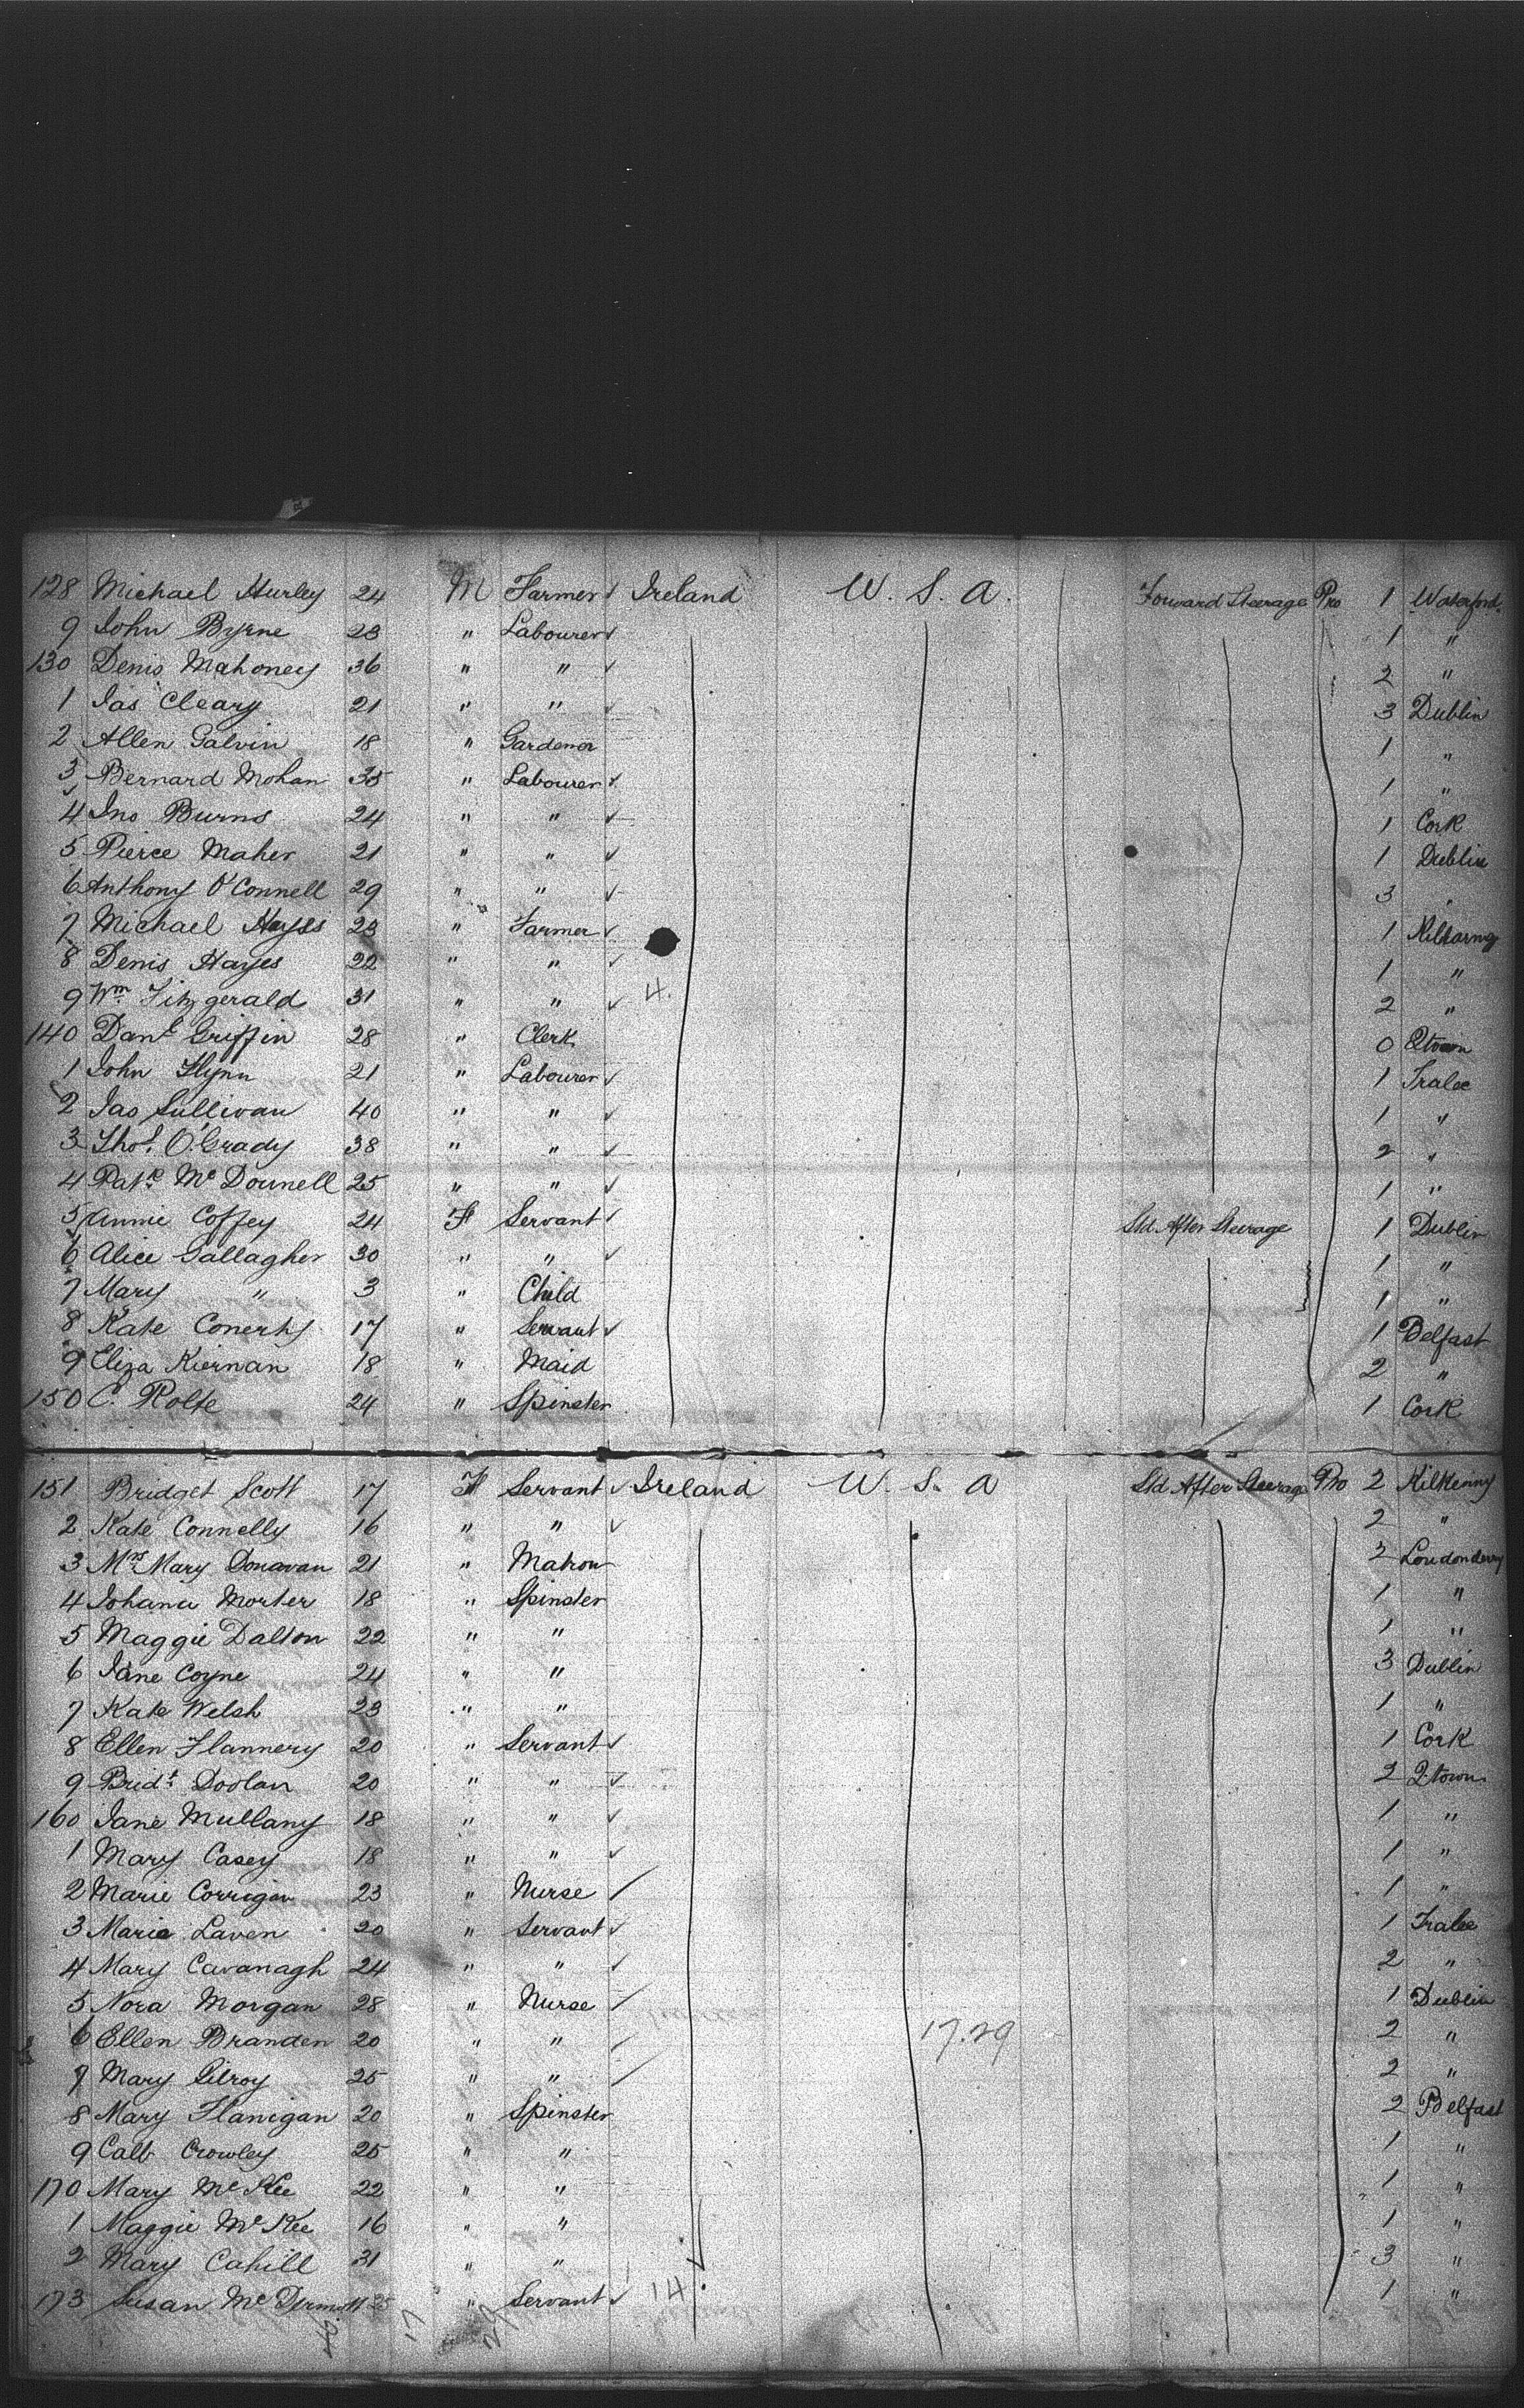 128 Michael Hurley 24 M Farmer ✓ Ireland U. S. A. Forward Steerage Pro 1 Waterford
9 John Byrne 23 " Labourer ✓ 1 "
130 Denis Mahoney 36 " " ✓ 2 "
1 Jas Cleary 21 " " ✓ 3 Dublin
2 Allen Galvin 18 " Gardener 1 "
3 Bernard Mohan 35 " Labourer ✓ 1 "
4 Jno Burns 24 " " ✓ 1 Cork
5 Pierce Maher 21 " " ✓ 1 Dublin
6 Anthony O'Connell 29 " " ✓ 3 "
7 Michael Hayes 23 " Farmer ✓ 1
8 Denis Hayes 22 " " ✓ 1 "
9 Wm Fitzgerald 31 " " ✓ 4. 2 "
140 Danl Griffin 28 " Clerk 0 Qtown
1 John Flynn 21 " Labourer ✓ 1 Tralee
2 Jas Sullivan 40 " " ✓ 1 "
3 Thos. O'Grady 38 " " ✓ 2 "
4 Patk Mc Donnell 25 " " ✓ 1 "
5 Annie Coffey 24 F Servant ✓ Std After Steerage 1 Dublin
6 Alice Gallagher 30 " " ✓ 1 "
7 Mary " 3 " Child 1 "
8 Kate Conerty 17 " Servant ✓ 1 Belfast
9 Eliza Kiernan 18 " Maid 2 "
150 C. Rolfe 24 " Spinster 1 Cork
151 Bridget Scott 17 F Servant ✓ Ireland U. S. A Std After Steerage Pro 2 Kilkenny
2 Kate Connelly 16 " " ✓ 2 "
3 Mrs Mary Donavan 21 " Matron 2 Londonderry
4 Johana Morter 18 " Spinster 1 "
5 Maggie Dalton 22 " " 1 "
6 Jane Coyne 24 " " 3 Dublin
7 Kate Welsh 23 " " 1 "
8 Ellen Flannery 20 " Servant ✓ 1 Cork
9 Bridt Doolan 20 " " ✓ 2 Qtown
160 Jane Mullany 18 " " ✓ 1 "
1 Mary Casey 18 " " ✓ 1 "
2 Marie Corrigan 23 " Nurse / 1 "
3 Maria Laven 20 " Servant ✓ 1 Tralee
4 Mary Cavanagh 24 " " ✓ 2 "
5 Nora Morgan 28 " Nurse / 1 Dublin
6 Ellen Branden 20 " " / 17.29 2 "
7 Mary Gilroy 25 " " / 2 "
8 Mary Flanigan 20 " Spinster 2 Belfast
9 Cath Crowley 25 " " 1 "
170 Mary Mc Kee 22 " " 1 "
1 Maggie Mc Kee 16 " " 1 "
2 Mary Cahill 31 " " 3 "
173 Susan Mc Dermott 25 " Servant ✓ 14. 1 "
17 29